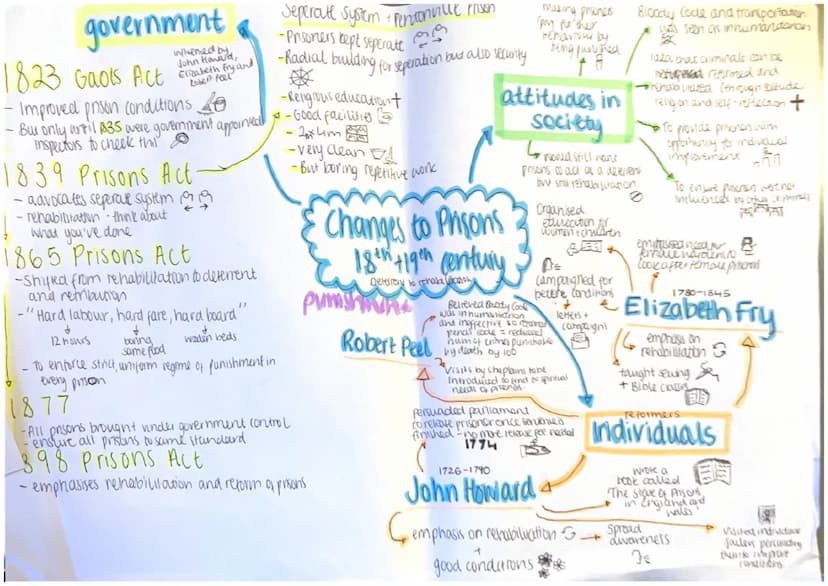 government
influenced by
John Howard,
Elizabeth Fry and
Robert Peel
1823 Gaols Act
- Improved prison conditions
- But only until 1835 were government appointed
inspectors to check this
1839 Prisons Act
- advocates seperate system
- rehabilitation - think about
what you've done
1865 Prisons Act
- Shifted from rehabilitation to deterrent
and retribution
- "Hard labour, hard fare, hard board"
12 hours
boring
same food
wooden beds
- To enforce strict, uniform regime of punishment in
every prison
1877
- All prisons brought under government control
- ensure all prisons to same standard
1898 Prisons Act
- emphasises rehabilitation and reform of prisons
Seperate System + Pentonville Prison
- Prisoners kept seperate
- Radial building for seperation but also security
- Religious education
- Good facilities
- 2x4m
- Very clean
- But boring repetitive work
Changes to Prisons
18th + 19th century
punishment
attitudes in
society
making prisoners
'pay' for their
behaviour by
being punished
Bloody Code and transportation
was seen as inhumanitarian
Idea that criminals can be
reformed and
rehabilitated through solitude,
religion and self-reflection
To provide prisoners with
opportunity for individual
improvement
To ensure prisoners were not
influenced by other criminals
still want
prisons to act as a deterrent
but still rehabilitation
Individuals
reformers
Elizabeth Fry
1780-1845
Organised
education for
women + children
emphasised need for
female wardens to
look after female prisoners
campaigned for
better conditions
letters +
campaign
emphasis on
rehabilitation
taught sewing
+ Bible classes
Robert Peel
Believed Bloody Code
was inhumanitarian
and ineffective so reformed
penal code = reduced
num of crimes punishable
by death by 100
Visits by chaplains to be
introduced to tend to spiritual
needs of prisoners
John Howard
1726-1790
persuaded parliament
to release prisoners once sentence
finished - no more release fee needed
1774
wrote a
book called
'The State of Prisons
in England and
Wales'
emphasis on rehabilitation
+
good conditions
spread
awareness
Visited individual
jailers persuading
them to improve
conditions